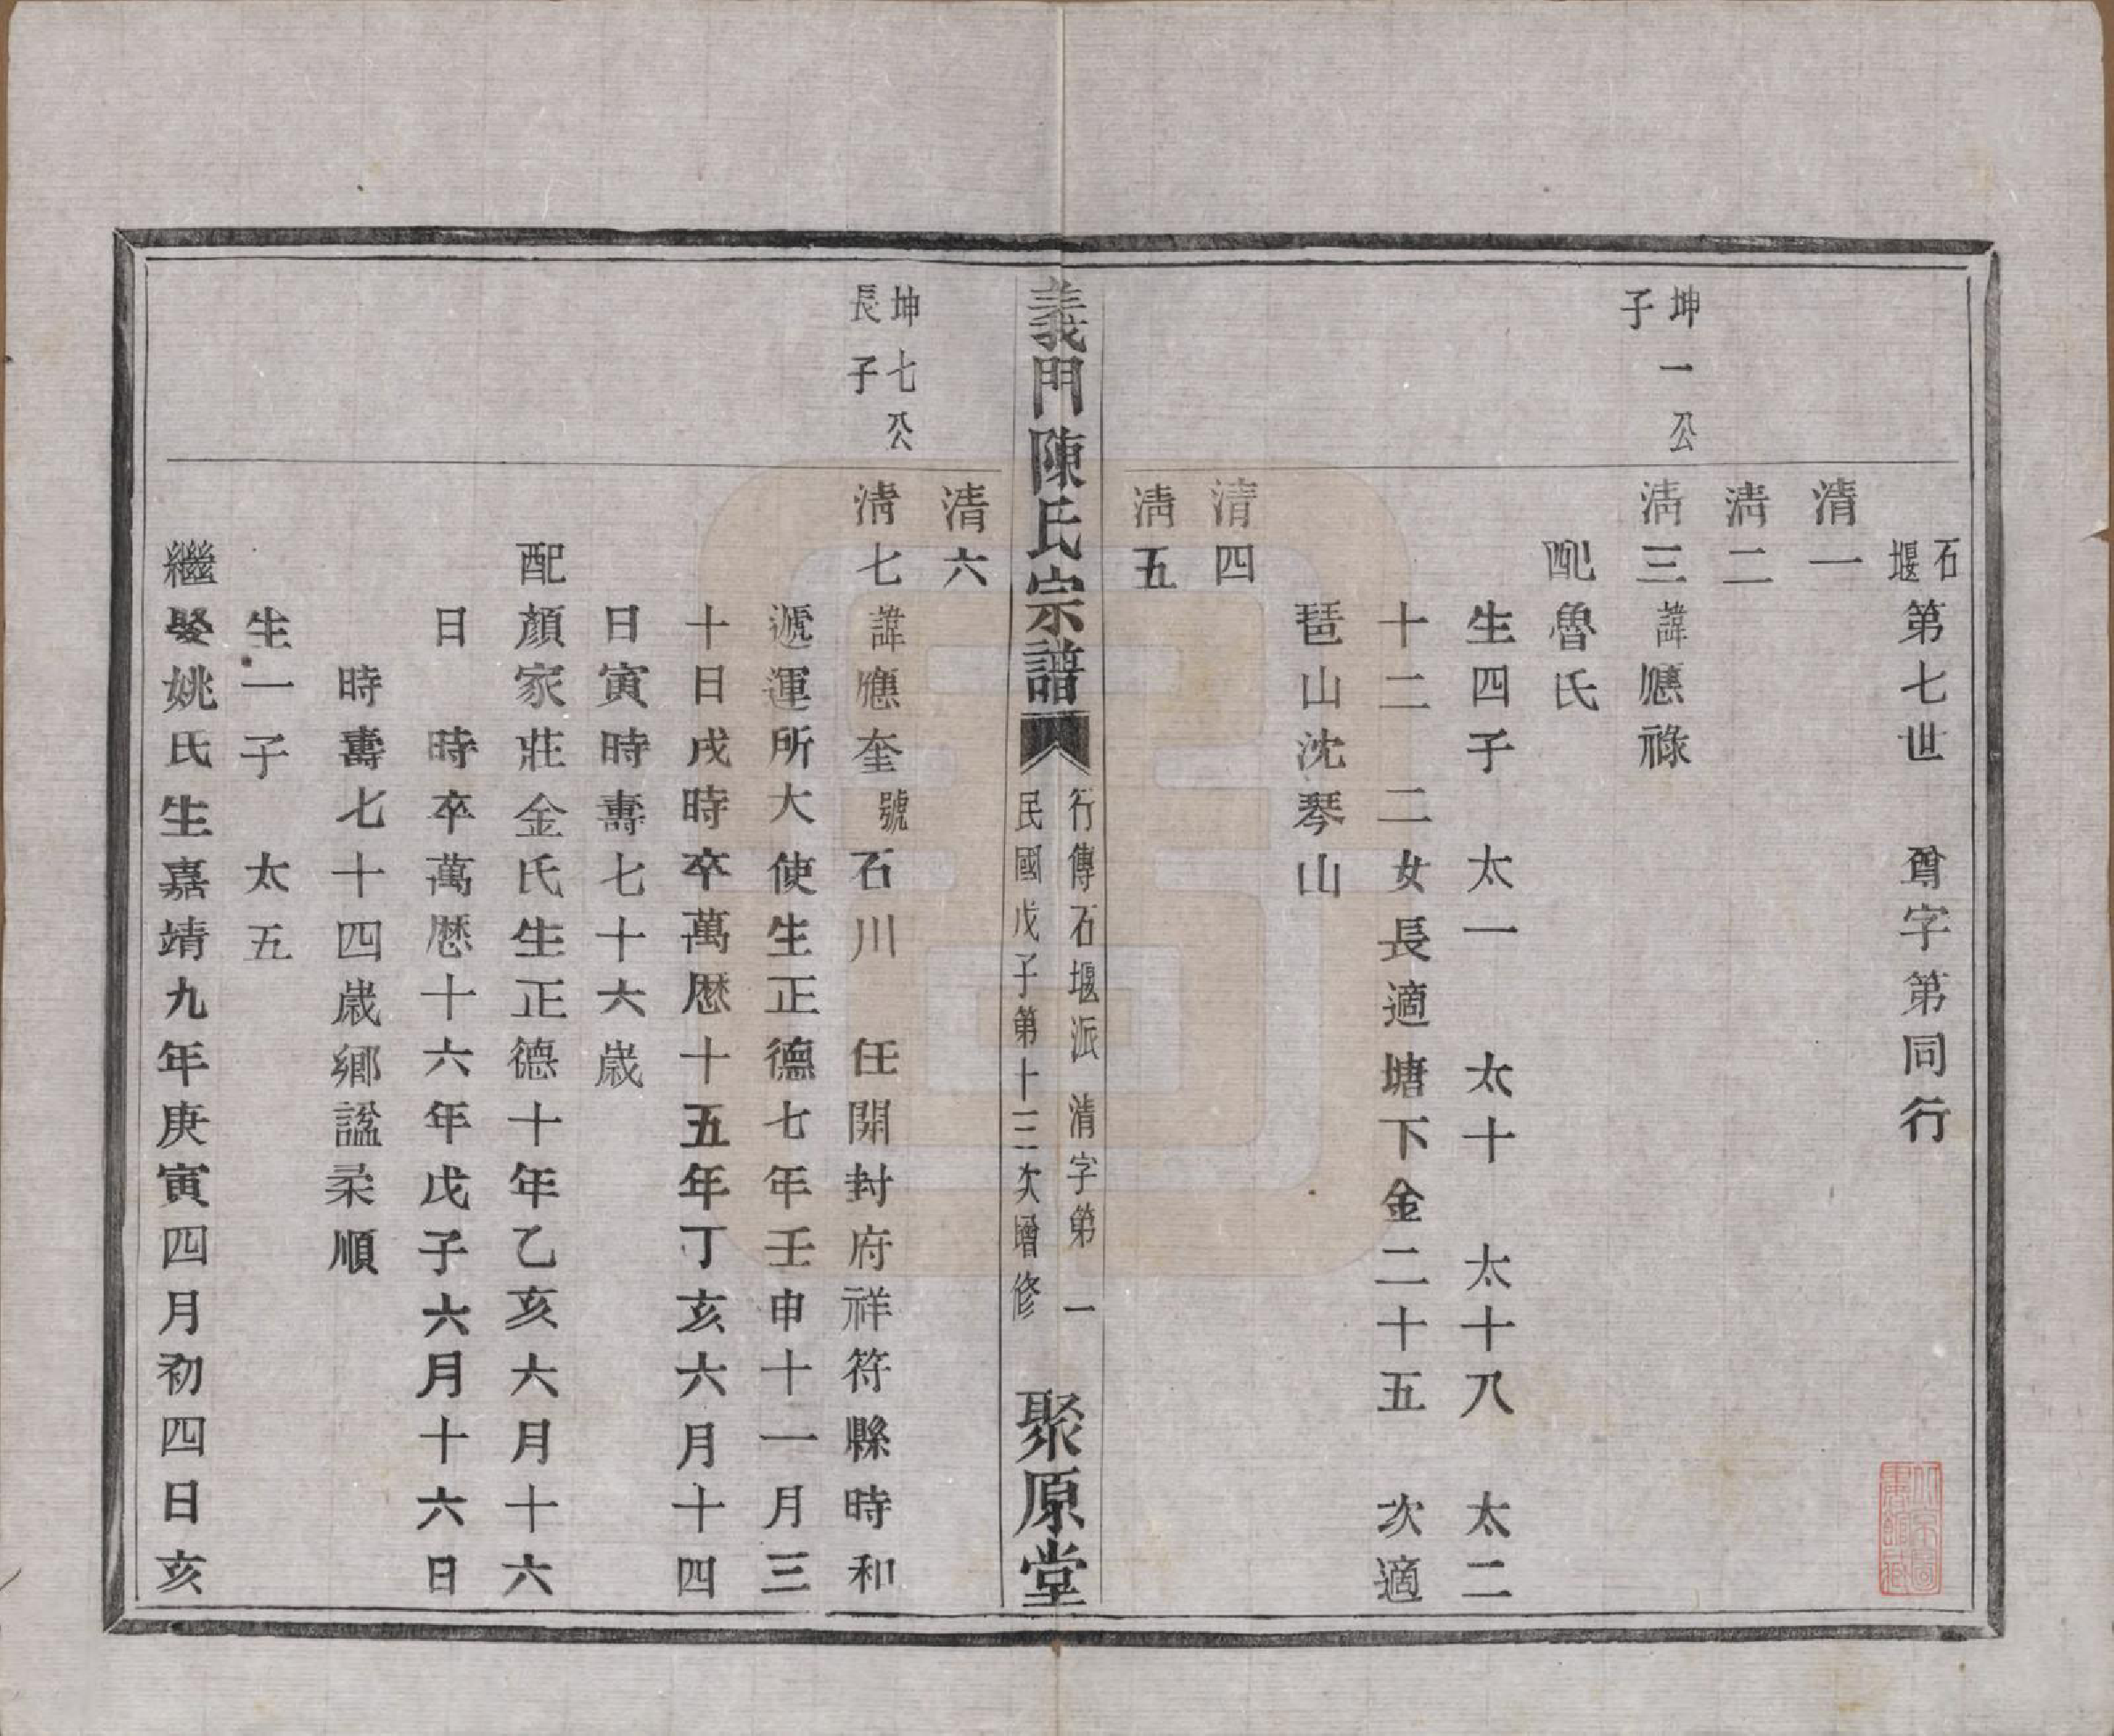 石堰第七世　尊字第同行
清一
清二
坤一公子
清三　諱應祿
配魯氏
生四子　太一　太十　太十八　太二
十二　二女長適塘下金二十五　次適
琶山沈琴山
清四
清五
義門陳氏宗譜　行傳石堰派　清字第　一
民國戊子第十三次增修　聚原堂
清六
坤七公長子
清七　諱應奎號石川　任開封府祥符縣時和
遞運所大使生正德七年壬申十一月三
十日戌時卒萬歷十五年丁亥六月十四
日寅時壽七十六歲
配顏家莊金氏生正德十年乙亥六月十六
日　時卒萬歷十六年戊子六月十六日
時壽七十四歲鄉諡柔順
生一子　太五
繼娶姚氏生嘉靖九年庚寅四月初四日亥